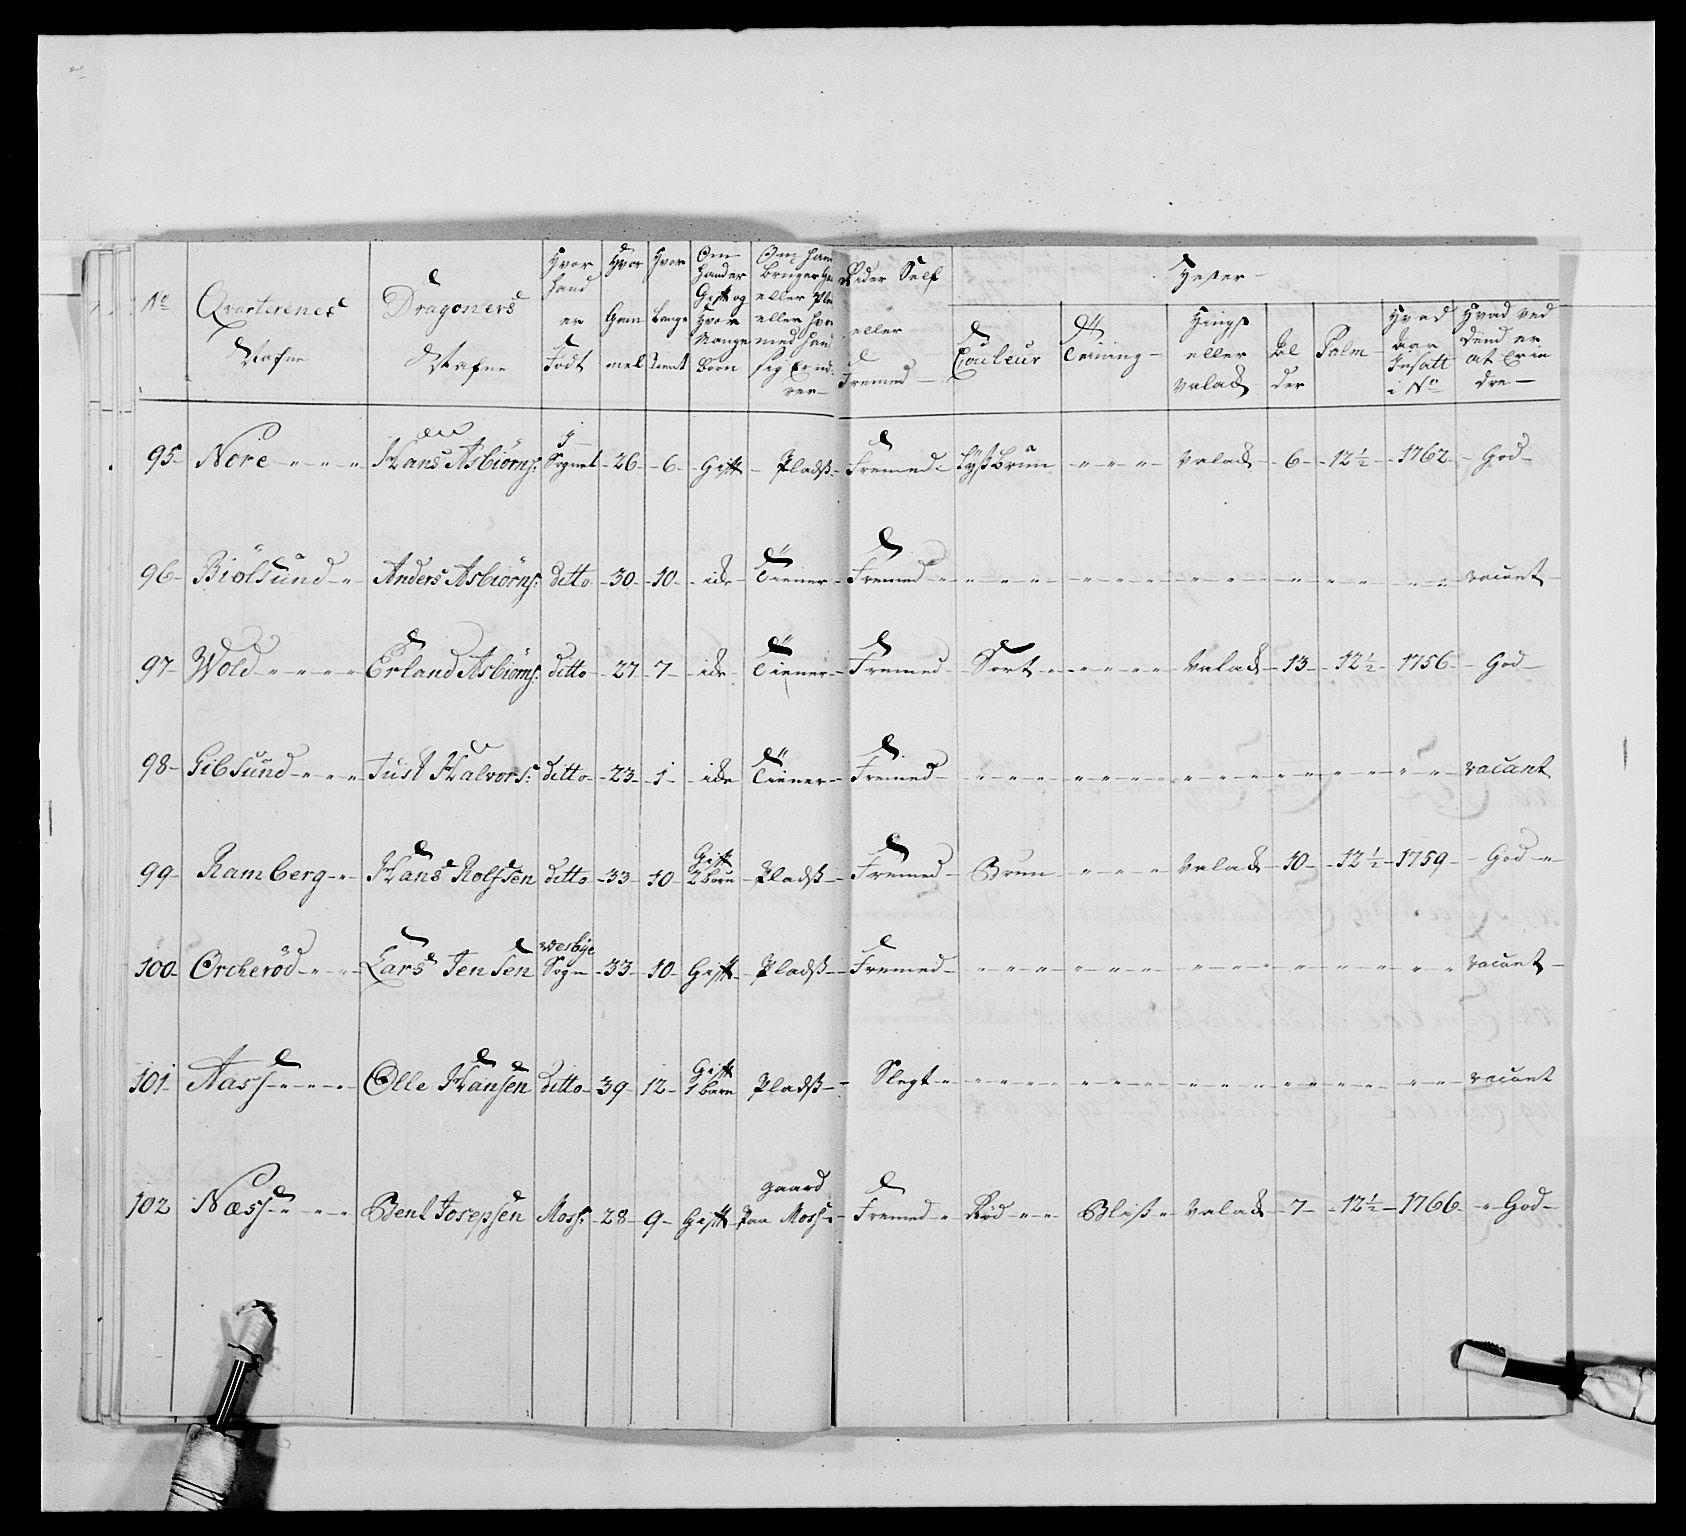 No Qvarterenes Nafne Dragoners Nafne Hvor hand er Født Hvor Gammel Hvor Længe tient Om hand er Gift og Hvor Mange Børn Rider Self eller Fremmed
Hester
Couleur Teining Hingst eller valack Al der Palm Hvad Aar Insatt i No Hvad ved dend er at Erin dre
95 Nore Hans Asbiörns: i Sognet 26 6 Gift Pladß Fremed Lyßbrun valack 6 12½ 1762 God
96 Biölsund Anders Asbiörns: ditto 30 10 ide Tiener Fremed vacant
97 Wold Erland Asbiörns: ditto 27 7 ide Tiener Fremed Sort valack 13 12½ 1756 God
98 Gibsund Just Halvors: ditto 23 1 ide Tiener Fremed vacant
99 Ramberg Hans Rolfsen ditto 33 10 Gift 2 børn Pladß Fremed Brun valack 10 12½ 1759 God
100 Orckeröd Lars Jensen Wesbye Sogn 33 10 Gift Pladß Fremed vacant
101 Aass Olle Hansen ditto 39 12 Gift 1 barn Pladß Slegt vacant
102 Næss Bent Josepsen Moss: 28 9 Gift gaard Paa Moss Fremed Röd Bliß valack 7 12½ 1766 God